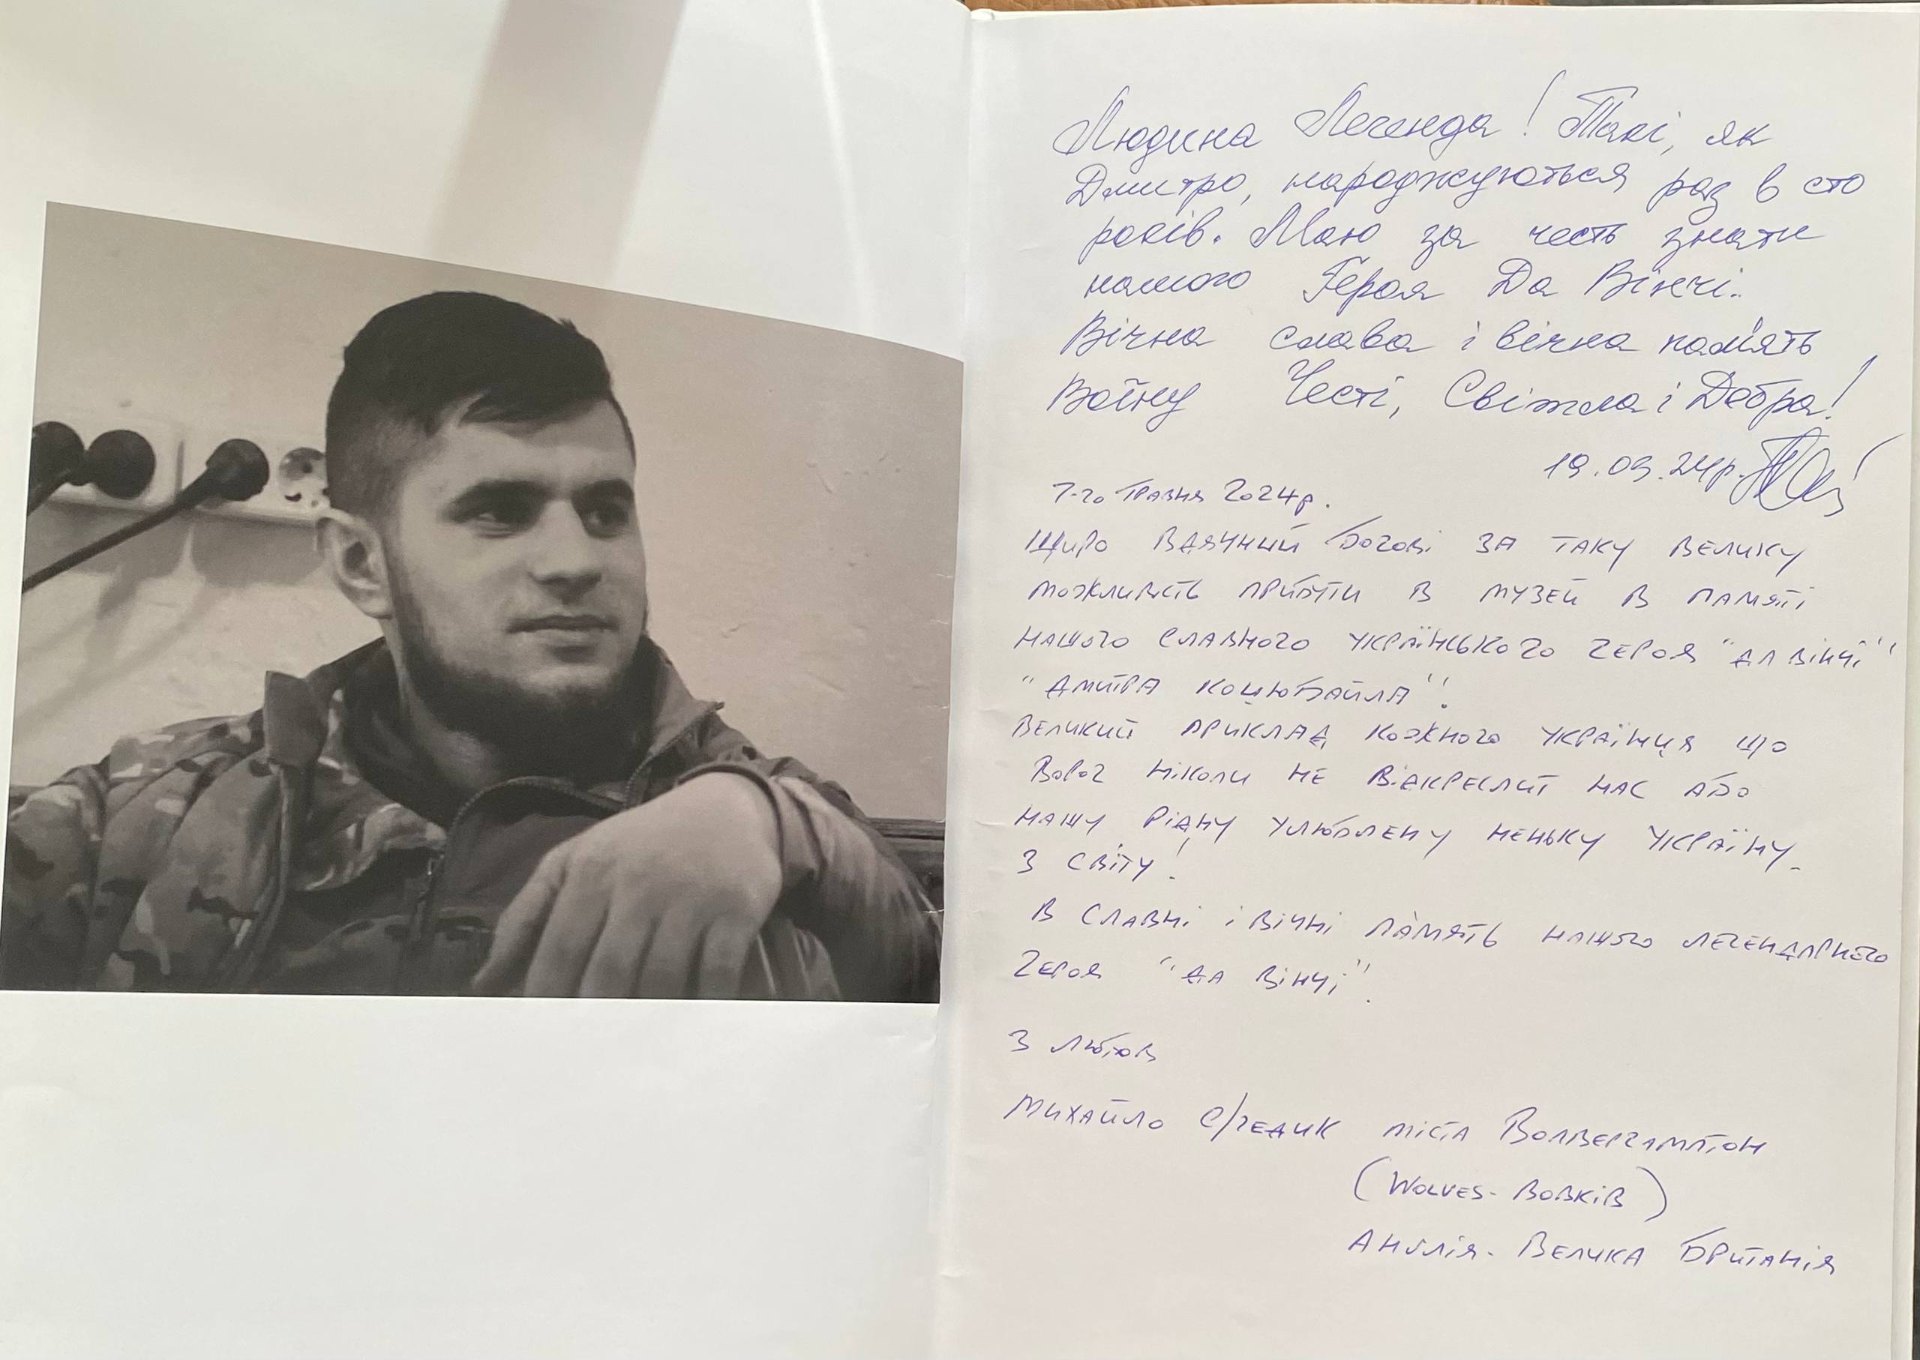 Людина Легенда! Такі, як
Дмитро, народжуються раз в сто
років. Маю за честь знати
нашого Героя Да Вінчі.
Вічна слава і вічна пам'ять
Воїну Честі, Світла і Добра!
19.03.24р.
7-го травня 2024р.
Щиро вдячний Богові за таку велику
можливість прибути в музей в памяті
нашого славного українського героя "Да Вінчі"
"Дмитра Коцюбайла".
Великий приклад кожного українця що
ворог ніколи не відкреслит нас або
нашу рідну улюблену неньку Україну.
з світу!
В славні і вічні память нашого легендарного
героя "Да Вінчі".
З любов
Михайло міста Волвергамптон
(Wolves - Вовків)
Англія - Велика Британія